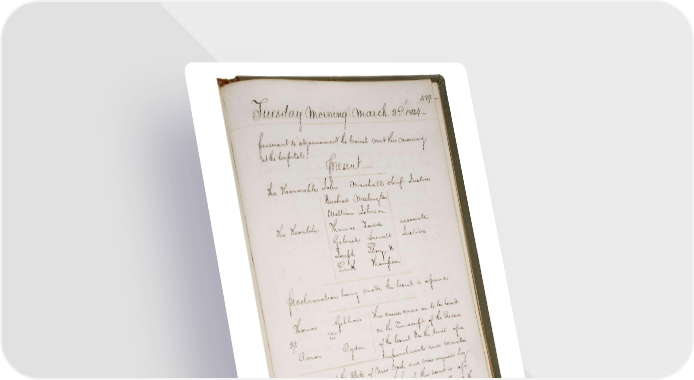 459.
Tuesday Morning March 2d 1824.
Pursuant to adjournment the Court met this morning
at the Capitol.
Present
The Honorable John Marshall chief Justice
Bushrod Washington
William Johnson
The Honble Thomas Todd associate
Gabriel Duvall Justices
Joseph Story
Smith Thompson
Proclamation being made the Court is opened
Thomas Gibbons This cause came on to be heard
vs on the Transcript of the Record
Aaron Ogden of the Court for the trial of
Impeachments and
of the State of New York, and was argued by